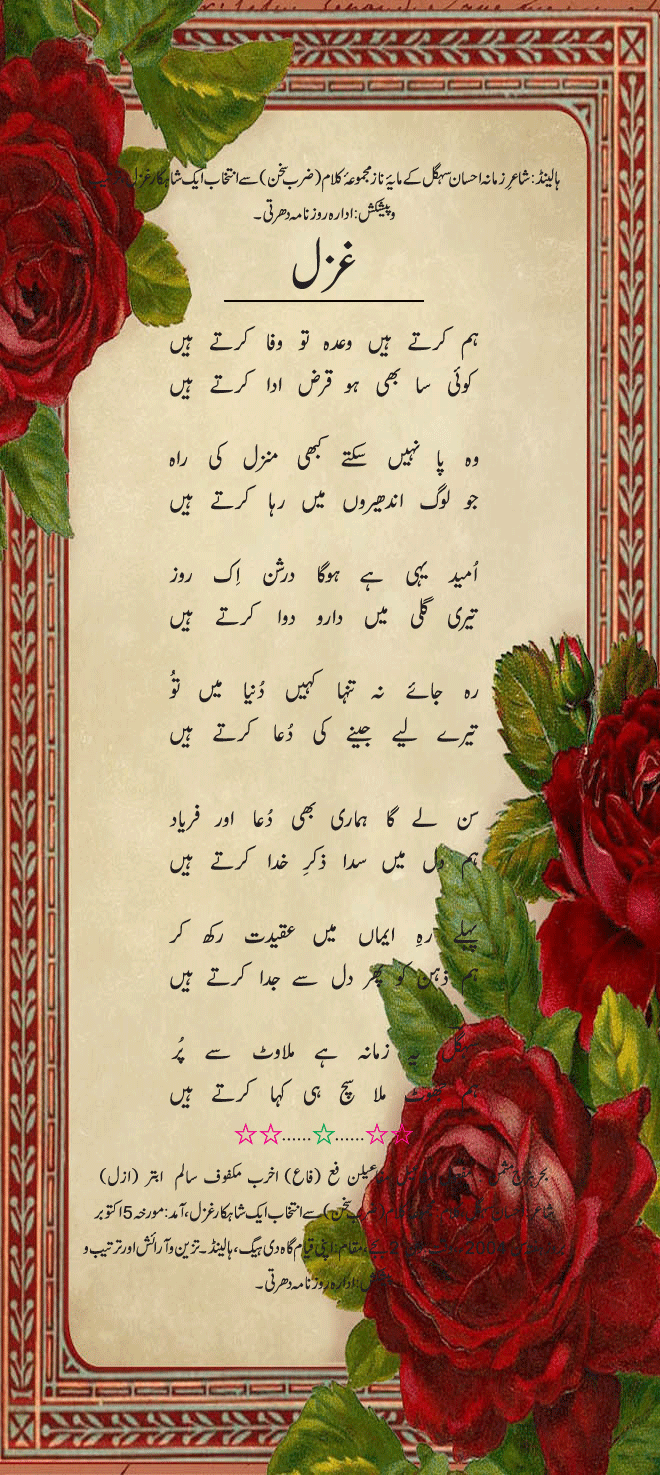 ہالینڈ: شاعرِ زمانہ احسان سہگل کے مایۂ ناز مجموعۂ کلام (ضربِ سخن) سے انتخاب ایک شاہکار غزل
و پیشکش: ادارہ روزنامہ دھرتی۔
غزل
ہم کرتے ہیں وعدہ تو وفا کرتے ہیں
کوئی سا بھی ہو قرض ادا کرتے ہیں
وہ پا نہیں سکتے کبھی منزل کی راہ
جو لوگ اندھیروں میں رہا کرتے ہیں
اُمید یہی ہے ہوگا درشن اِک روز
تیری گلی میں دارو دوا کرتے ہیں
رہ جائے نہ تنہا کہیں دُنیا میں تُو
تیرے لیے جینے کی دُعا کرتے ہیں
سن لے گا ہماری بھی دُعا اور فریاد
ہم دل میں سدا ذکرِ خدا کرتے ہیں
پہلے رہِ ایماں میں عقیدت رکھ کر
ہم ذہن کو پھر دل سے جدا کرتے ہیں
یہ زمانہ ہے ملاوٹ سے پُر
ہم جھوٹ ملا سچ ہی کہا کرتے ہیں
فع (فاع) اخرب مکفوف سالم ابتر (ازل)
سے انتخاب ایک شاہکار غزل، آمد: مورخہ 5 اکتوبر
مقام: اپنی قیام گاہ دی ہیگ، ہالینڈ۔ تزین و آرائش اور ترتیب و
ادارہ روزنامہ دھرتی۔